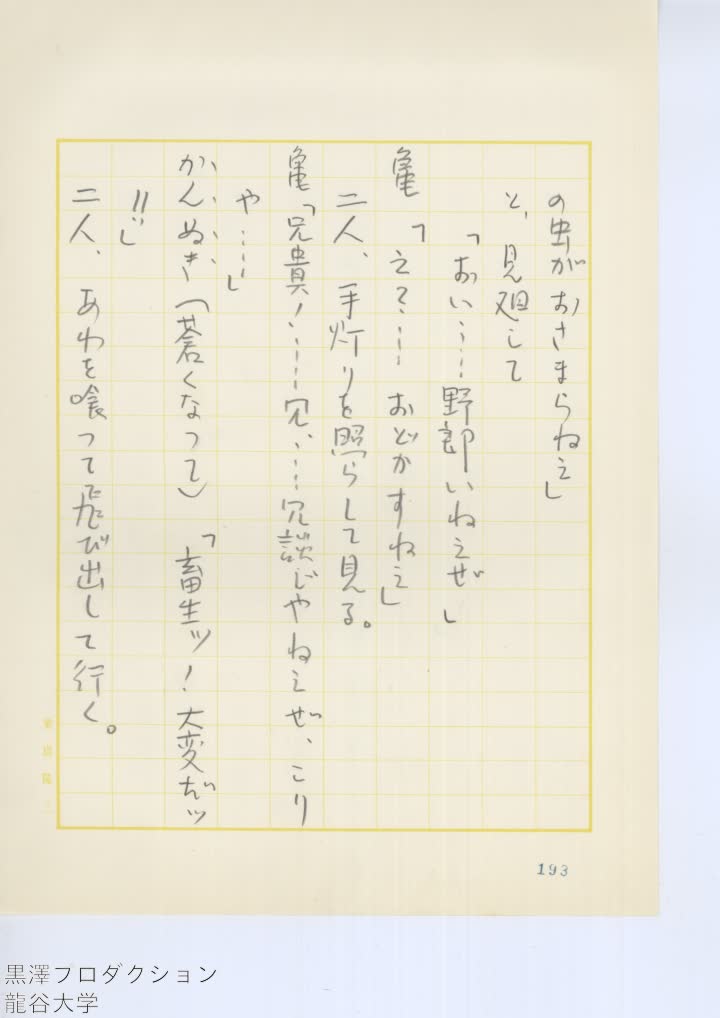 の虫がおさまらねえ」
と、見廻して
「おい……野郎いねえぜ」
亀「え？……おどかすねえ」
二人、手灯りを照らして見る。
亀「兄貴！……冗、……冗談じやねえぜ、こり
や……」
かんぬき（蒼くなつて）「畜生ッ！大変だッ
!!」
二人、あわを喰つて飛び出して行く。
193
黒澤プロダクション
龍谷大学